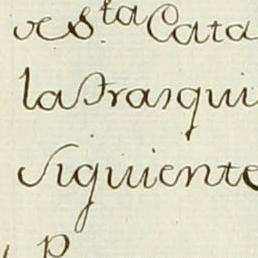 de S.ta Cata
la Frasqui
siguiente
P